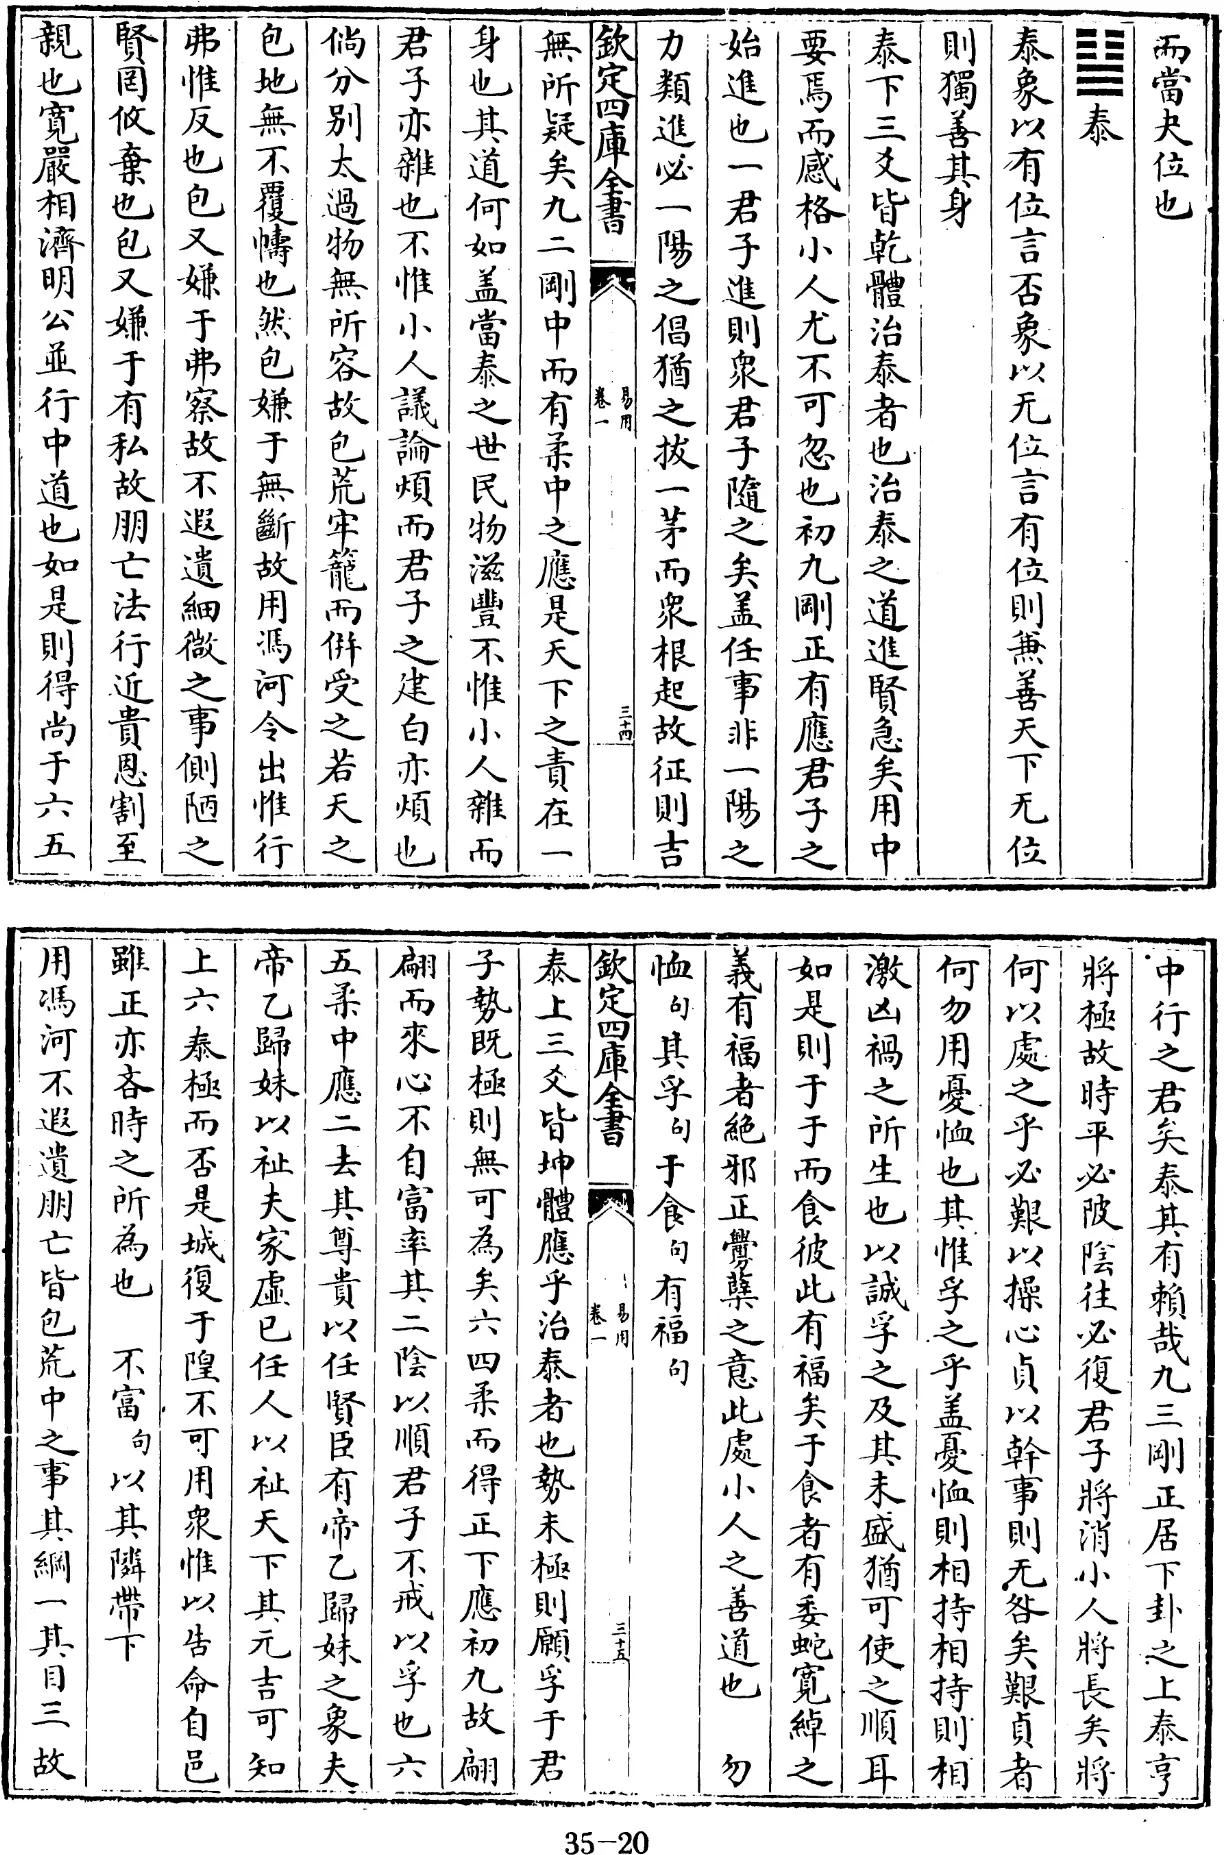 而當夬位也
䷊泰
泰象以有位言否象以无位言有位則兼善天下无位
則獨善其身
泰下三爻皆乾體治泰者也治泰之道進賢急矣用中
要焉而感格小人尤不可忽也初九剛正有應君子之
始進也一君子進則衆君子隨之矣盖任事非一陽之
力類進必一陽之倡猶之拔一茅而衆根起故征則吉
欽定四庫全書 易用 卷一 三十四
無所疑矣九二剛中而有柔中之應是天下之責在一
身也其道何如盖當泰之世民物滋豐不惟小人雜而
君子亦雜也不惟小人議論煩而君子之建白亦煩也
倘分别太過物無所容故包荒牢籠而倂受之若天之
包地無不覆幬也然包嫌于無斷故用馮河令出惟行
弗惟反也包又嫌于弗察故不遐遺細微之事側陋之
賢罔攸棄也包又嫌于有私故朋亡法行近貴恩割至
親也寛嚴相濟明公並行中道也如是則得尚于六五
中行之君矣泰其有賴哉九三剛正居下卦之上泰亨
將極故時平必陂陰往必復君子將消小人將長矣將
何以處之乎必艱以操心貞以幹事則无咎矣艱貞者
何勿用憂恤也其惟孚之乎盖憂恤則相持相持則相
激凶禍之所生也以誠孚之及其未盛猶可使之順耳
如是則于于而食彼此有福矣于食者有委蛇寛綽之
義有福者絶邪正釁孽之意此處小人之善道也 勿
恤句其孚句于食句有福句
欽定四庫全書 易用 卷一 三十五
泰上三爻皆坤體應乎治泰者也勢未極則願孚于君
子勢既極則無可為矣六四柔而得正下應初九故翩
翩而來心不自富率其二陰以順君子不戒以孚也六
五柔中應二去其尊貴以任賢臣有帝乙歸妹之象夫
帝乙歸妹以祉夫家虛已任人以祉天下其元吉可知
上六泰極而否是城復于隍不可用衆惟以告命自邑
雖正亦吝時之所為也 不富句以其隣帶下
用馮河不遐遺朋亡皆包荒中之事其綱一其目三故
35-20